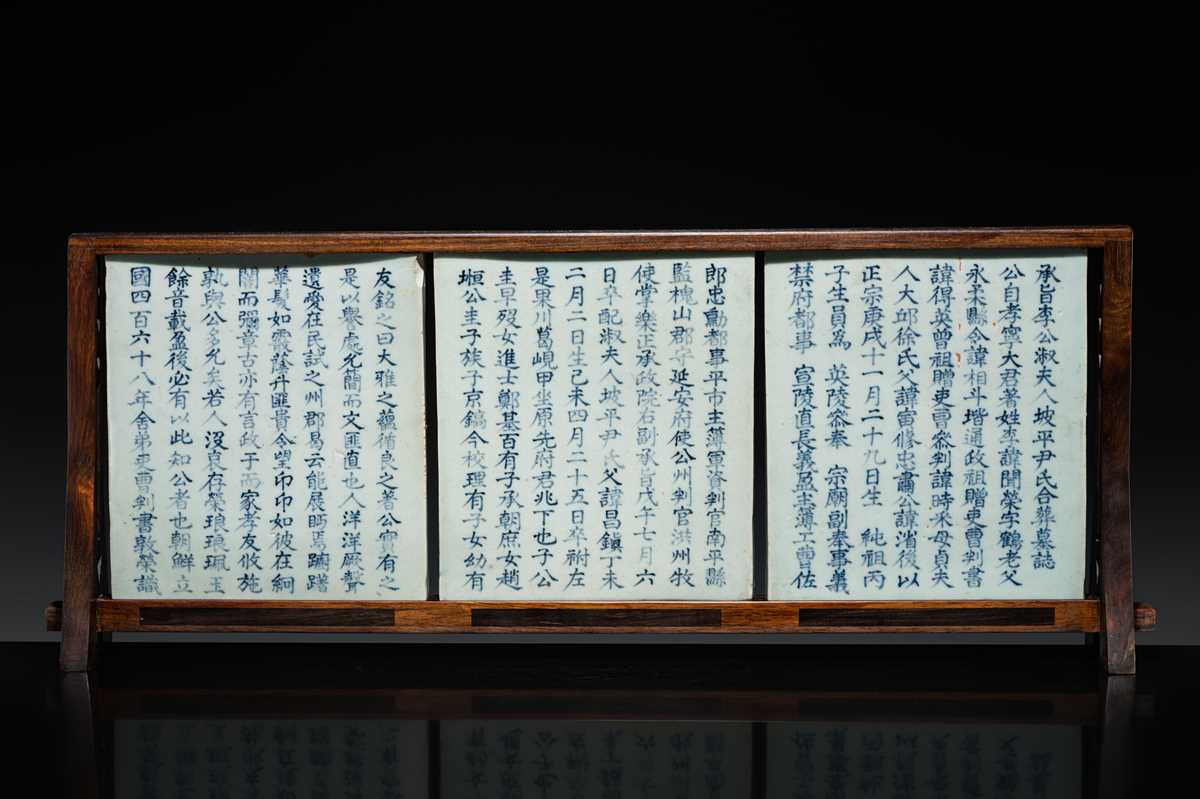 承旨李公淑夫人坡平尹氏合葬墓誌
公自孝寧大君著姓李諱開榮字鶴老父
永柔縣令諱相斗堦通政祖贈吏曹判書
諱得英曾祖贈吏曹叅判諱時采母貞夫
人大邱徐氏父諱宙修忠肅公諱渻後以
正宗庚戌十一月二十九日生 純祖丙
子生員爲 英陵叅奉 宗廟副奉事義
禁府都事 宣陵直長義盈主薄工曹佐
郎忠勳都事平市主薄軍資判官南平縣
監槐山郡守延安府使公州判官洪州牧
使掌樂正承政院右副承旨戊午七月六
日卒配淑夫人坡平尹氏父諱昌鎭丁未
二月二日生己未四月二十五日卒祔左
是果川葛峴甲坐原先府君兆下也子公
圭早歿女進士鄭基百有子承朝庶女趙
恒公圭子族子京鎬今校理有子女幼有
友銘之曰大雅之蘊循良之著公實有之
是以譽處允蕳而文匪直也人洋洋厥聲
遺愛在民試之州郡易云能展眄焉蹁躚
華髮如雲蔭升匪貴令望卬卬如彼在絅
闇而彌章古亦有言政于而家孝友攸施
孰與公多允矣若人沒哀存榮琅琅珮玉
餘音載盈後必有以此知公者也朝鮮立
國四百六十八年舍弟吏曹判書敦榮識